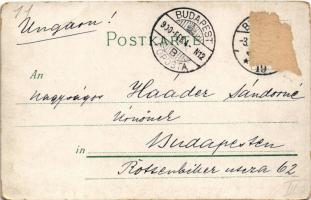 Ungarn!
POSTKARTE
BUDAPEST
N12
POSTA
An
Nagyságos Haader Sándorné
Úrnőnek
in Budapesten
Rottenbiller utcza 62